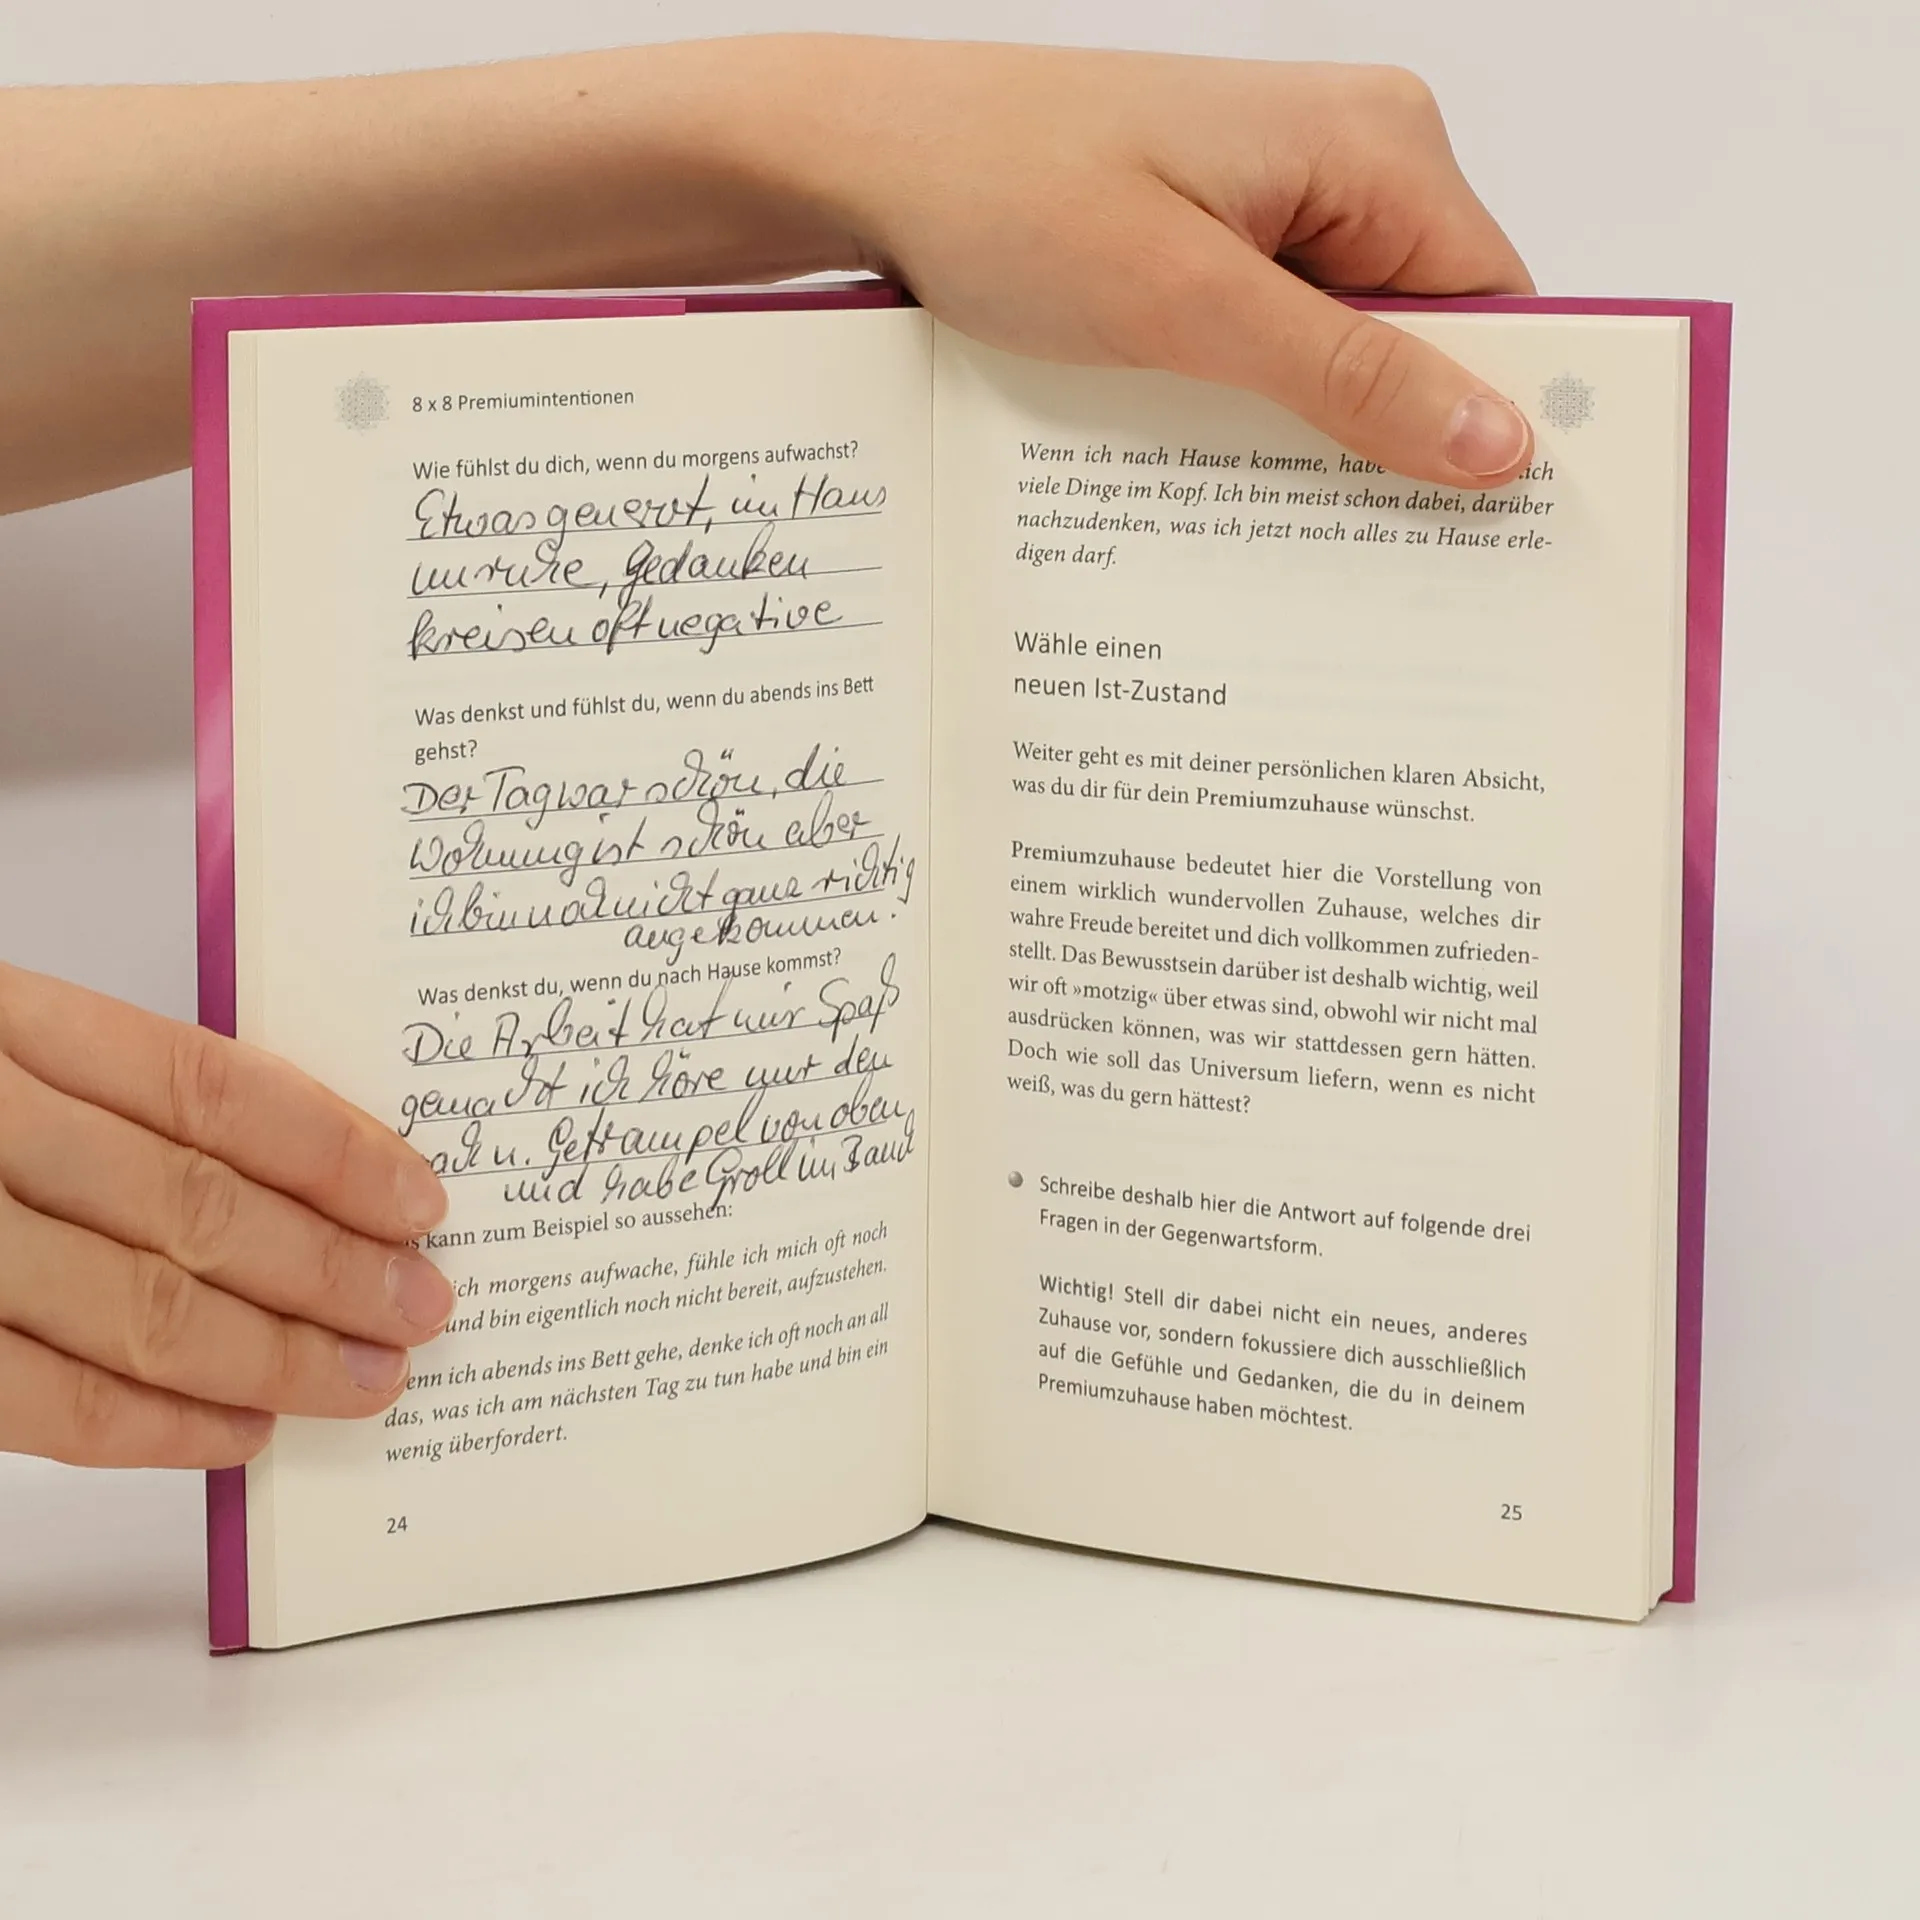 8 x 8 Premiumintentionen
Wie fühlst du dich, wenn du morgens aufwachst?
Etwas genervt, im Haus
unruhe, Gedanken
kreisen oft negative
Was denkst und fühlst du, wenn du abends ins Bett
gehst?
Der Tag war schön, die
Wohnung ist schön aber
ich bin noch nicht ganz richtig
angekommen!
Was denkst du, wenn du nach Hause kommst?
Die Arbeit hat mir Spaß
gemacht ich höre nur den
u. Getrampel von oben,
und habe Groll im Bauch
kann zum Beispiel so aussehen:
ich morgens aufwache, fühle ich mich oft noch
und bin eigentlich noch nicht bereit, aufzustehen.
enn ich abends ins Bett gehe, denke ich oft noch an all
das, was ich am nächsten Tag zu tun habe und bin ein
wenig überfordert.
24
Wenn ich nach Hause komme, habe ich
viele Dinge im Kopf. Ich bin meist schon dabei, darüber
nachzudenken, was ich jetzt noch alles zu Hause erle-
digen darf.
Wähle einen
neuen Ist-Zustand
Weiter geht es mit deiner persönlichen klaren Absicht,
was du dir für dein Premiumzuhause wünschst.
Premiumzuhause bedeutet hier die Vorstellung von
einem wirklich wundervollen Zuhause, welches dir
wahre Freude bereitet und dich vollkommen zufrieden-
stellt. Das Bewusstsein darüber ist deshalb wichtig, weil
wir oft »motzig« über etwas sind, obwohl wir nicht mal
ausdrücken können, was wir stattdessen gern hätten.
Doch wie soll das Universum liefern, wenn es nicht
weiß, was du gern hättest?
Schreibe deshalb hier die Antwort auf folgende drei
Fragen in der Gegenwartsform.
Wichtig! Stell dir dabei nicht ein neues, anderes
Zuhause vor, sondern fokussiere dich ausschließlich
auf die Gefühle und Gedanken, die du in deinem
Premiumzuhause haben möchtest.
25